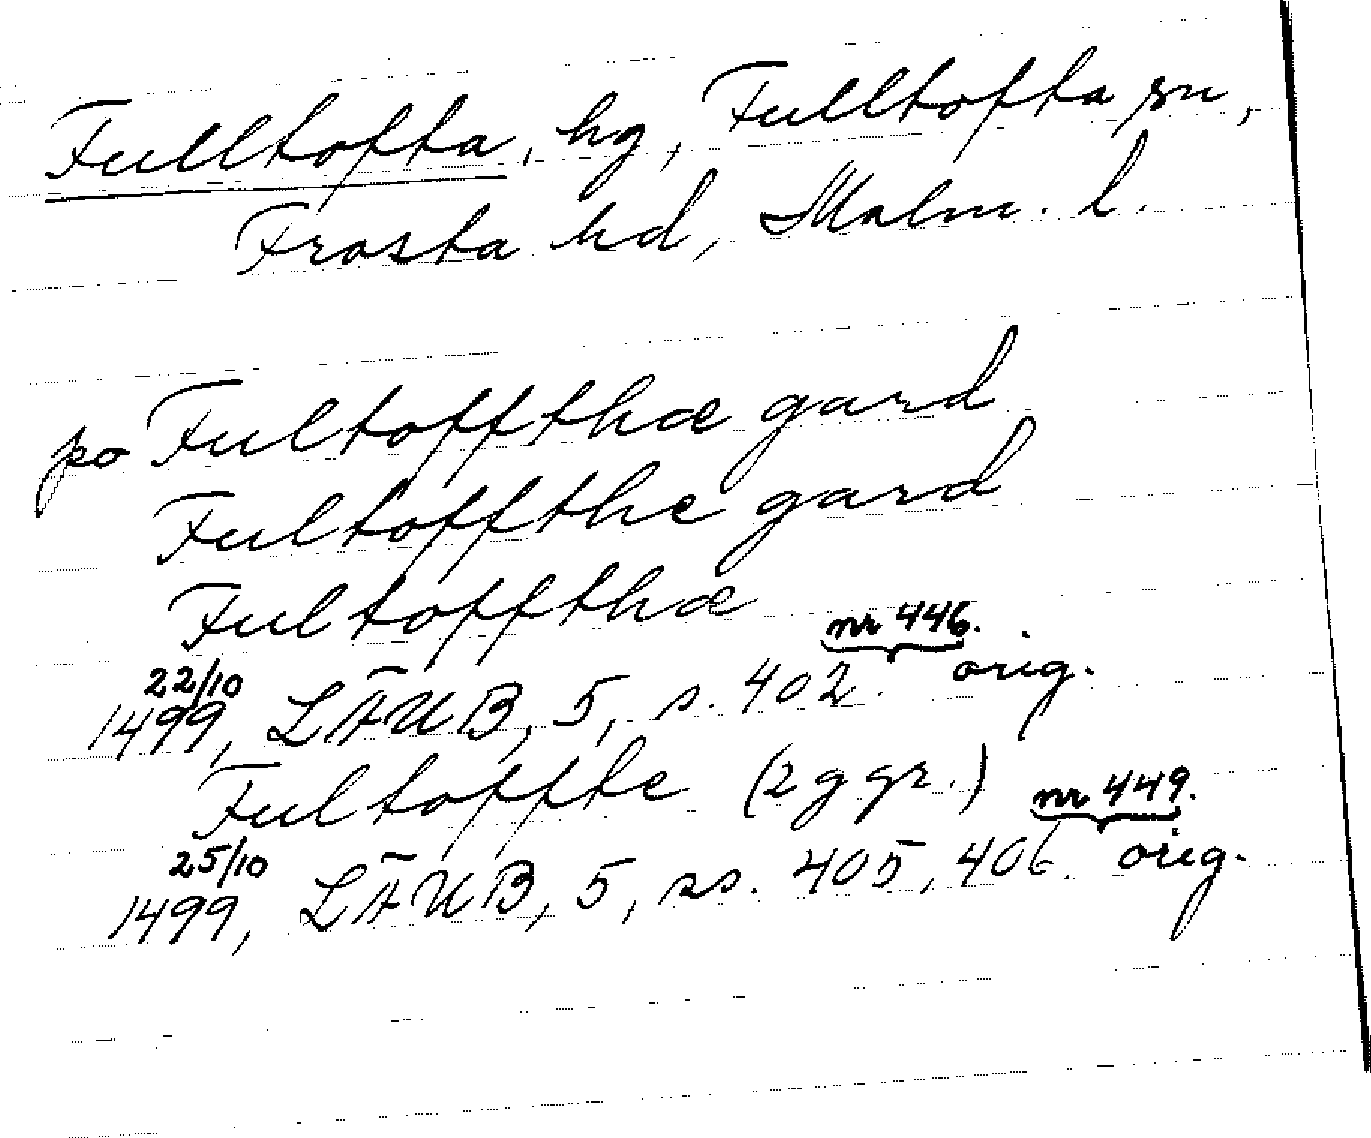 Fulltofta, hg, Fulltofta sn,
Frosta hd, Malm. l.
po Fultoffthæ gard
Fultoffthe gard
Fultoffthæ
nr 446.
22/10
1499, LÄUB, 5, s. 402. orig.
Fultoffte (2 ggr.)
nr 449.
25/10
1499, LÄUB, 5, ss. 405, 406. orig.